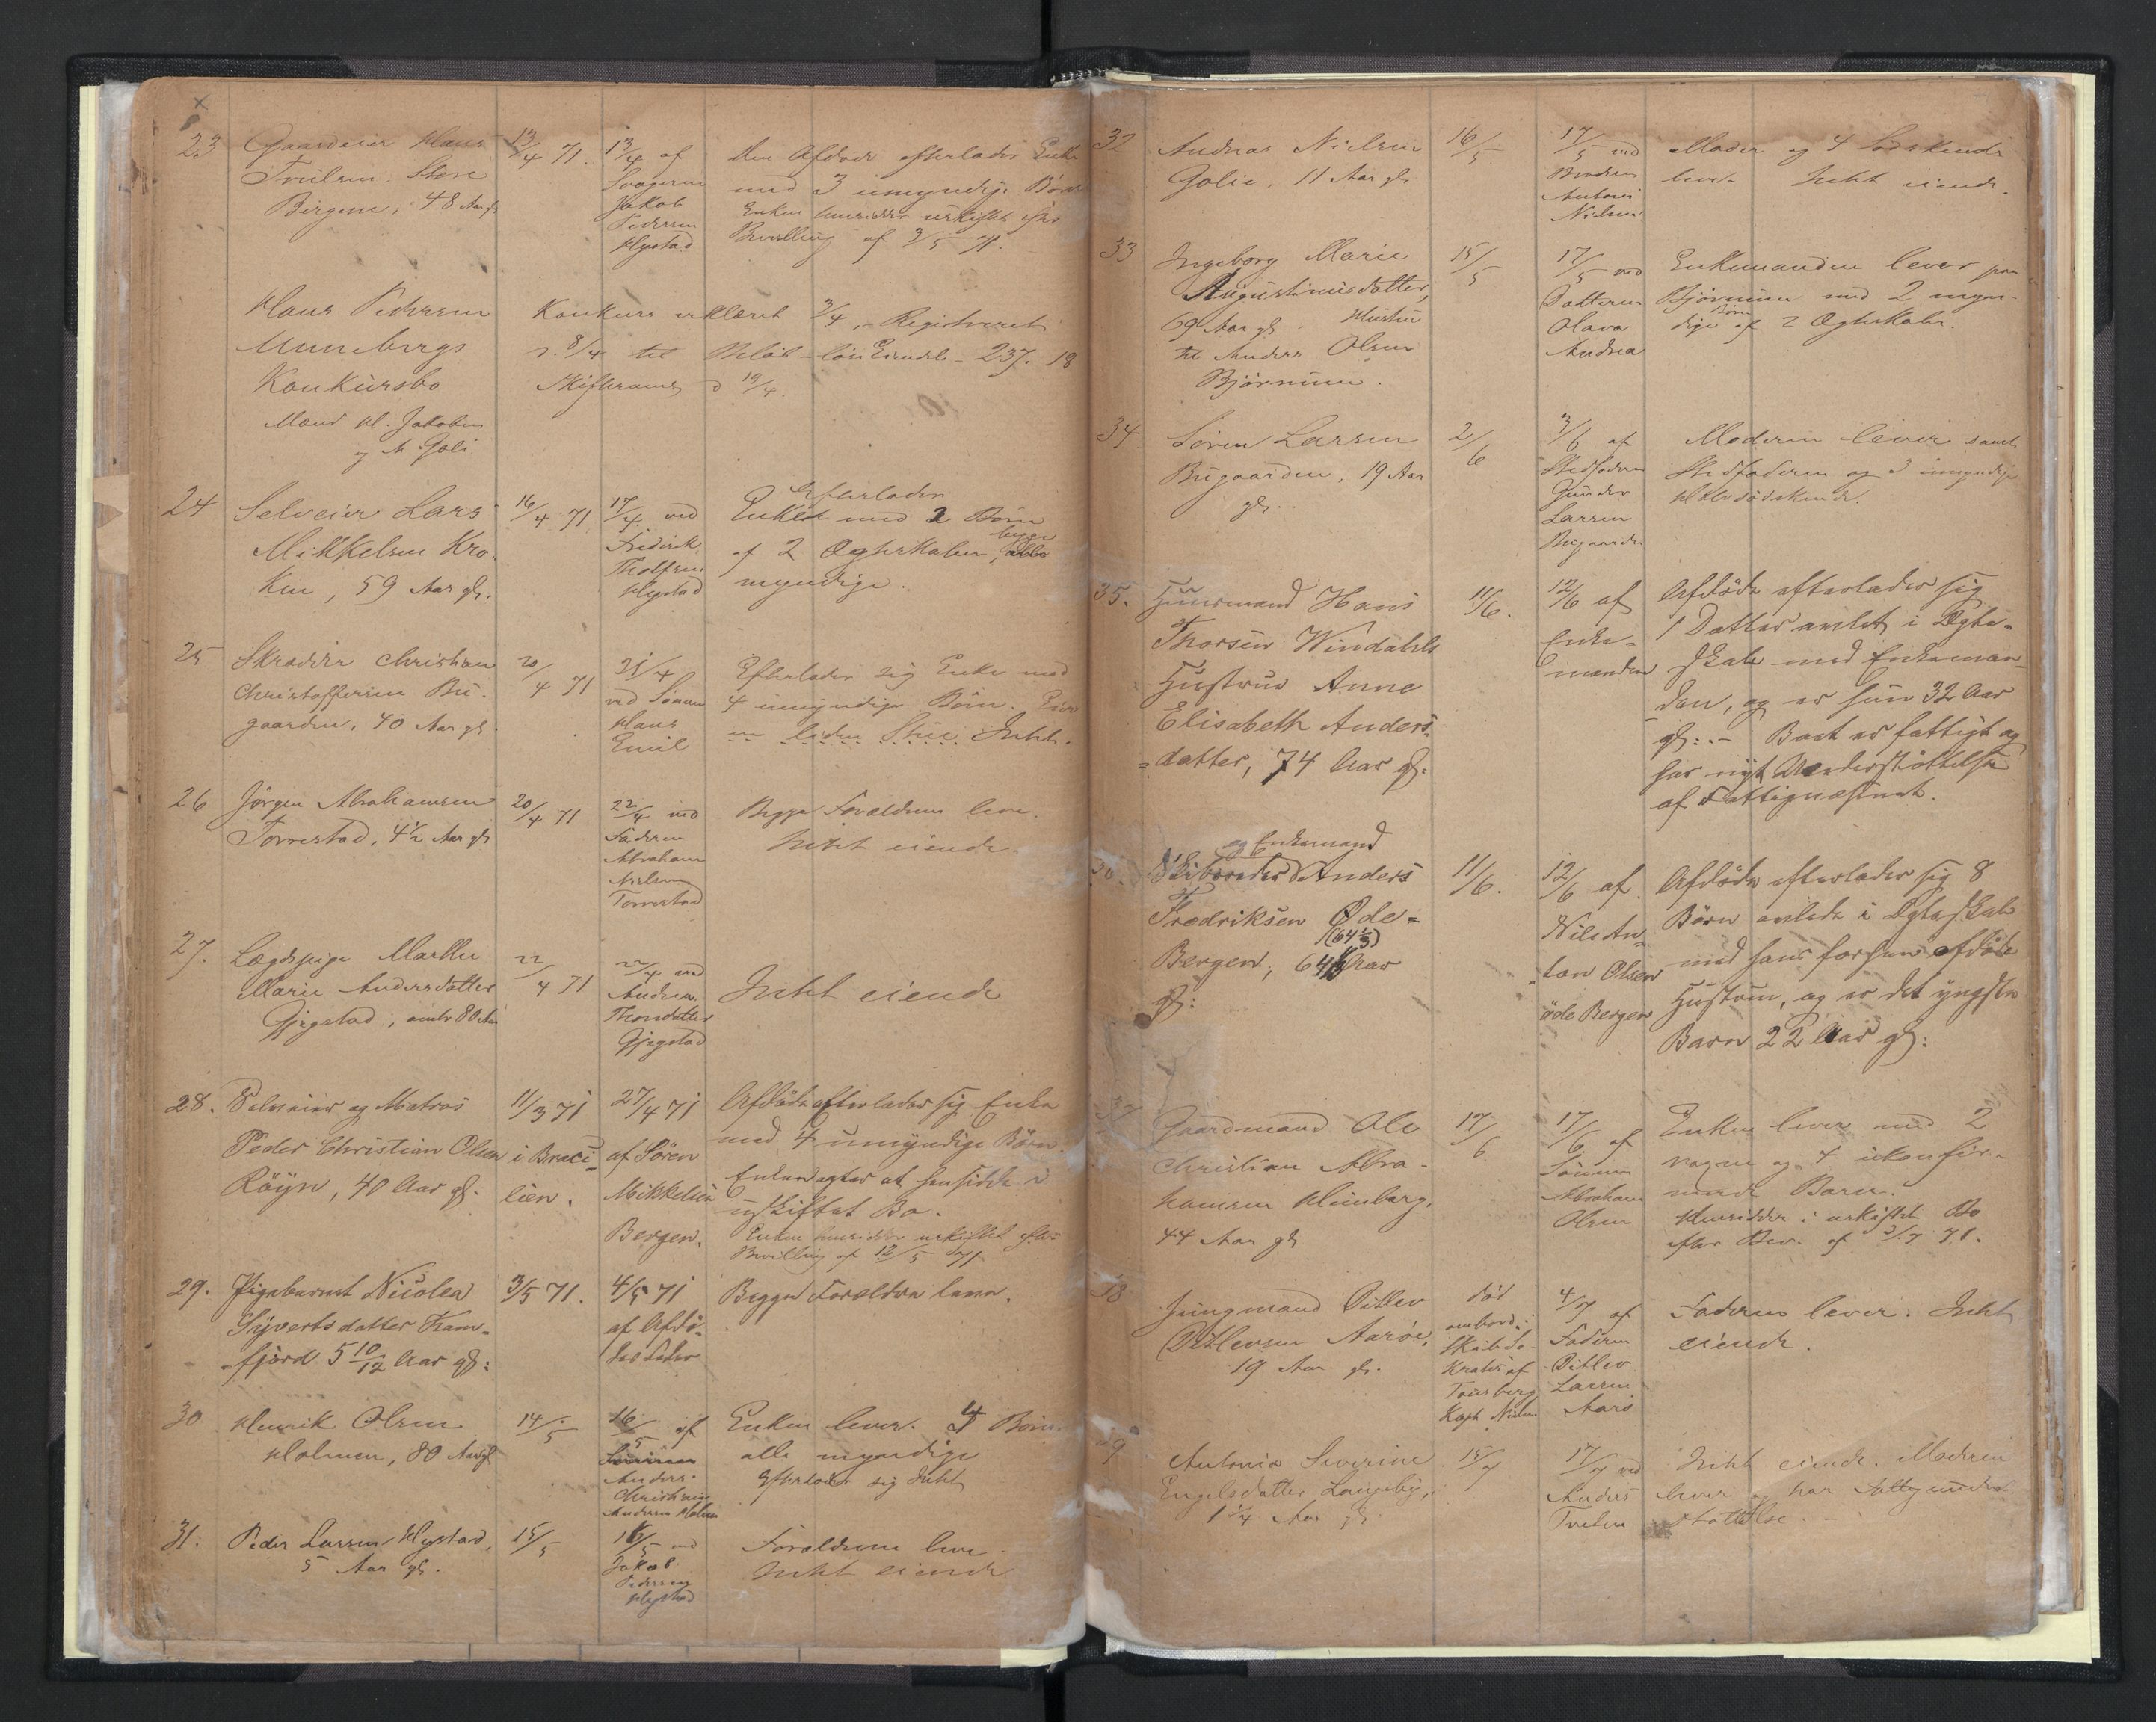 23 Gaardeier Hans 13/4 71. 13/4 af Den Afdøde efterlader Enke
Store Svogeren med 3 umyndige Børn
Bergene, 48 Aar gl Jakob Enken hensidder uskiftet efter
Pedersen Bevilling af 3/5 71.
Hystad
Hans Pedersen Konkurs erklæret 3/4, Registreret
Unnebergs d. 8/4 til Beløb løse Eiendele 237. 18
Konkursbo Skiftesamg d 19/4.
Mænd H. Jakobsen
og A Goli
24 Selveier Lars 16/4 71 17/4 ved Efterlader
Mikkelsen Kro- Frederik Enke med 2 Børn
ken, 59 Aar gl. Tholfsen af 2 Ægteskaber, begge
Hystad myndige.
25 Skrædder Christian 20/4 71 21/4 Efterlader sig Enke med
Christoffersen Bu- ved Sønnen 4 umyndige Børn. Eier
gaarden, 40 Aar gl Hans en liden Stue Intet.
Emil
26 Jörgen Abrahamsen 20/4 71 22/4 ved Begge Forældrene leve.
Torrestad, 4½ Aar gl Faderen Intet eiende.
Abraham
Nielsen
Torrestad
27. Lægdspige Marthe 22/4 71 22/4 ved Intet eiende
Marie Andersdatter Andrea
Gjegstad, omtr 80 Aar Thorsdatter
Gjegstad
28. Selveier og Matros 11/3 71 27/4 71 Afdöde efterlader sig Enke
Peder Christian Olsen i Brasi- af Sören med 4 umyndige Börn.
Röyn, 40 Aar gl. lien. Mikkelsen Enken agter at hensidde i
Bergen. uskiftet Bo.
Enken hensidder uskiftet efter
Bevilling af 12/5 71
29. Pigebarnet Nicolea 3/5 71. 4/5 71 Begge Forældre leve.
Syvertsdatter Kam- af Afdö-
fjord 5 10/12 Aar gl: des Fader
30 Henrik Olsen 14/5 16/5 af Enken lever. 4 Børn
Holmen, 80 Aar gl Sönnen alle myndige
Anders Efterlader sig Intet
Christian
Andersen Holmen
31. Peder Larsen Hystad, 15/5 16/5 ved Forældrene leve
5 Aar gl. Jakob Intet eiende
Pedersen
Hystad
32 Andreas Nielsen 16/5 17/5 ved Moder og 4 Sødskende
Golie. 11 Aar gl. Broderen lever. Intet eiende.
Antoni
Nielsen
33 Ingeborg Marie 15/5 17/5 ved Enkemanden lever paa
Augustinusdatter, Datteren Bjørnum med 2 myn-
69 Aar gl. Hustru Olava dige Børn af 2 Ægteskaber.
til Anders Olsen Andrea
Bjørnum.
34 Sören Larsen 2/6 3/6 af Moderen lever samt
Bugaarden, 19 Aar Stedfaderen Stedfaderen og 3 umyndige
gl. Gunder Halvsødskende.
Larsen
Bugaarden
35. Huusmand Hans 11/6. 12/6 af Afdöde efterlader sig
Thorsen Windahls Enke- 1 Datter avlet i Ægte-
Hustrue Anne manden skab med Enkeman-
Elisabeth Anders- den, og er hun 32 Aar
datter, 74 Aar gl: gl:- Boet er fattigt og
har nydt Understöttelse
af Fattigvæsenet.
og Enkemand
Anders 11/6. 12/6 af Afdöde efterlader sig 8
Fredriksen Øde- Nils An- Börn avlede i Ægteskab
(64 1/3)
Bergen, 64 Aar ton Olsen med hans forhen afdöde
gl: öde Bergen Hustrue, og er det yngste
Barn 22 Aar gl:
37 Gaardmand Ole 17/6 17/6 af Enken lever med 2
Christian Abra- Sönnen voxne og 4 ukonfir-
hamsen Himberg. Abraham merede Børn.
44 Aar gl Olsen Hensidder i uskiftet Bo
efter Bev. af 3/7 71.
38 Jungmand Ditlev död 4/7 af Faderen lever. Intet
Ditlevsen Aarøe, ombord i Faderen eiende.
19 Aar gl. Skibet So- Ditlev
krates af Larsen
Tønsberg Aarö
Kapt Nielsen
39 Antonia Severine 15/7 17/7 ved Intet eiende. Moderen
Engelsdatter Langeby, Anders lever og har Fattigunder-
1¼ Aar gl Tveten støttelse. -